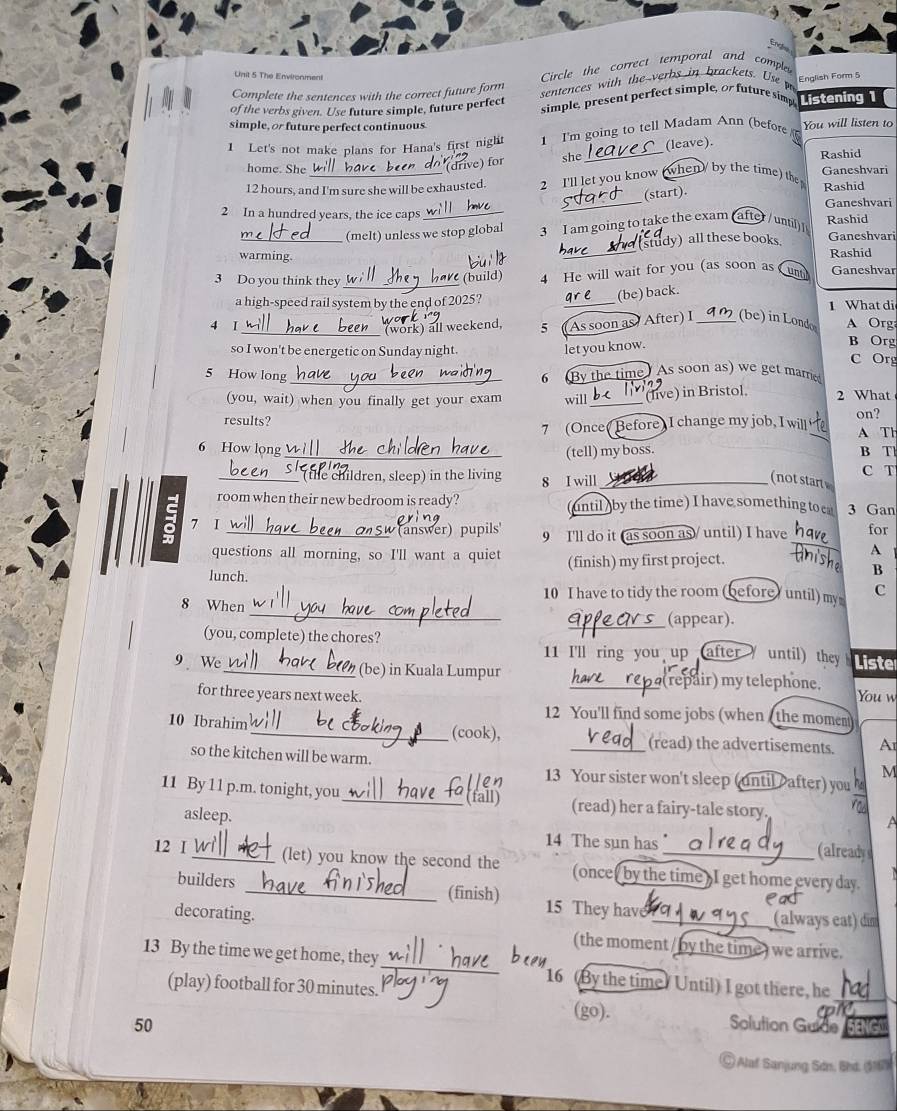 Unit 5 The Environment
Complete the sentences with the correct future form
of the verbs given. Use future simple, future perfect
simple, or future perfect continuous.
1 Let's not make plans for Hana's first night
home. She will have been driving (drive) for
12 hours, and I'm sure she will be exhausted.
2 In a hundred years, the ice caps will have
melted (melt) unless we stop global
warming.
3 Do you think they will they have built (build)
a high-speed rail system by the end of 2025?
4 I will have been working (work) all weekend,
so I won't be energetic on Sunday night.
5 How long have you been waiting
(you, wait) when you finally get your exam
results?
6 How long will the children have
been sleeping (the children, sleep) in the living
room when their new bedroom is ready?
7 I will have been answering (answer) pupils'
questions all morning, so I'll want a quiet
lunch.
8 When will you have completed
(you, complete) the chores?
9 We will have been (be) in Kuala Lumpur
for three years next week.
10 Ibrahim will be cooking (cook),
so the kitchen will be warm.
11 By 11 p.m. tonight, you will have fallen (fall)
asleep.
12 I will let (let) you know the second the
builders have finished (finish)
decorating.
13 By the time we get home, they will have been
(play) football for 30 minutes. playing
50
TUTOR
Circle the correct temporal and complete
sentences with the verbs in brackets. Use
simple, present perfect simple, or future simple
1 I'm going to tell Madam Ann (before /
she leaves (leave).
2 I'll let you know (when / by the time) the
start (start).
3 I am going to take the exam (after / until) I
have studied (study) all these books.
4 He will wait for you (as soon as / until)
are (be) back.
5 (As soon as / After) I am (be) in London
let you know.
6 (By the time / As soon as) we get married
will be living (live) in Bristol.
7 (Once / Before) I change my job, I will
(tell) my boss.
8 I will (not start
(until / by the time) I have something to eat
9 I'll do it (as soon as / until) I have have
(finish) my first project. finished
10 I have to tidy the room (before / until) my
appears (appear).
11 I'll ring you up (after / until) they
have repaired (repair) my telephone.
12 You'll find some jobs (when / the moment)
read (read) the advertisements.
13 Your sister won't sleep (until / after) you
(read) her a fairy-tale story.
14 The sun has already (already
(once / by the time) I get home every day.
15 They have always eat (always eat)
(the moment / by the time) we arrive.
16 (By the time / Until) I got there, he had
(go).
Solution Guide
© Alaf Sanjung Sdn. Bhd.
English Form 5
Listening 1
You will listen to
Rashid
Ganeshvari
Rashid
Ganeshvari
Rashid
Ganeshvari
Rashid
Ganeshvar
1 What di
A Orga
B Org
C Org
2 What
on?
A Th
B Th
C T
3 Gan
for
A
B
C
Liste
You w
Ar
M
A